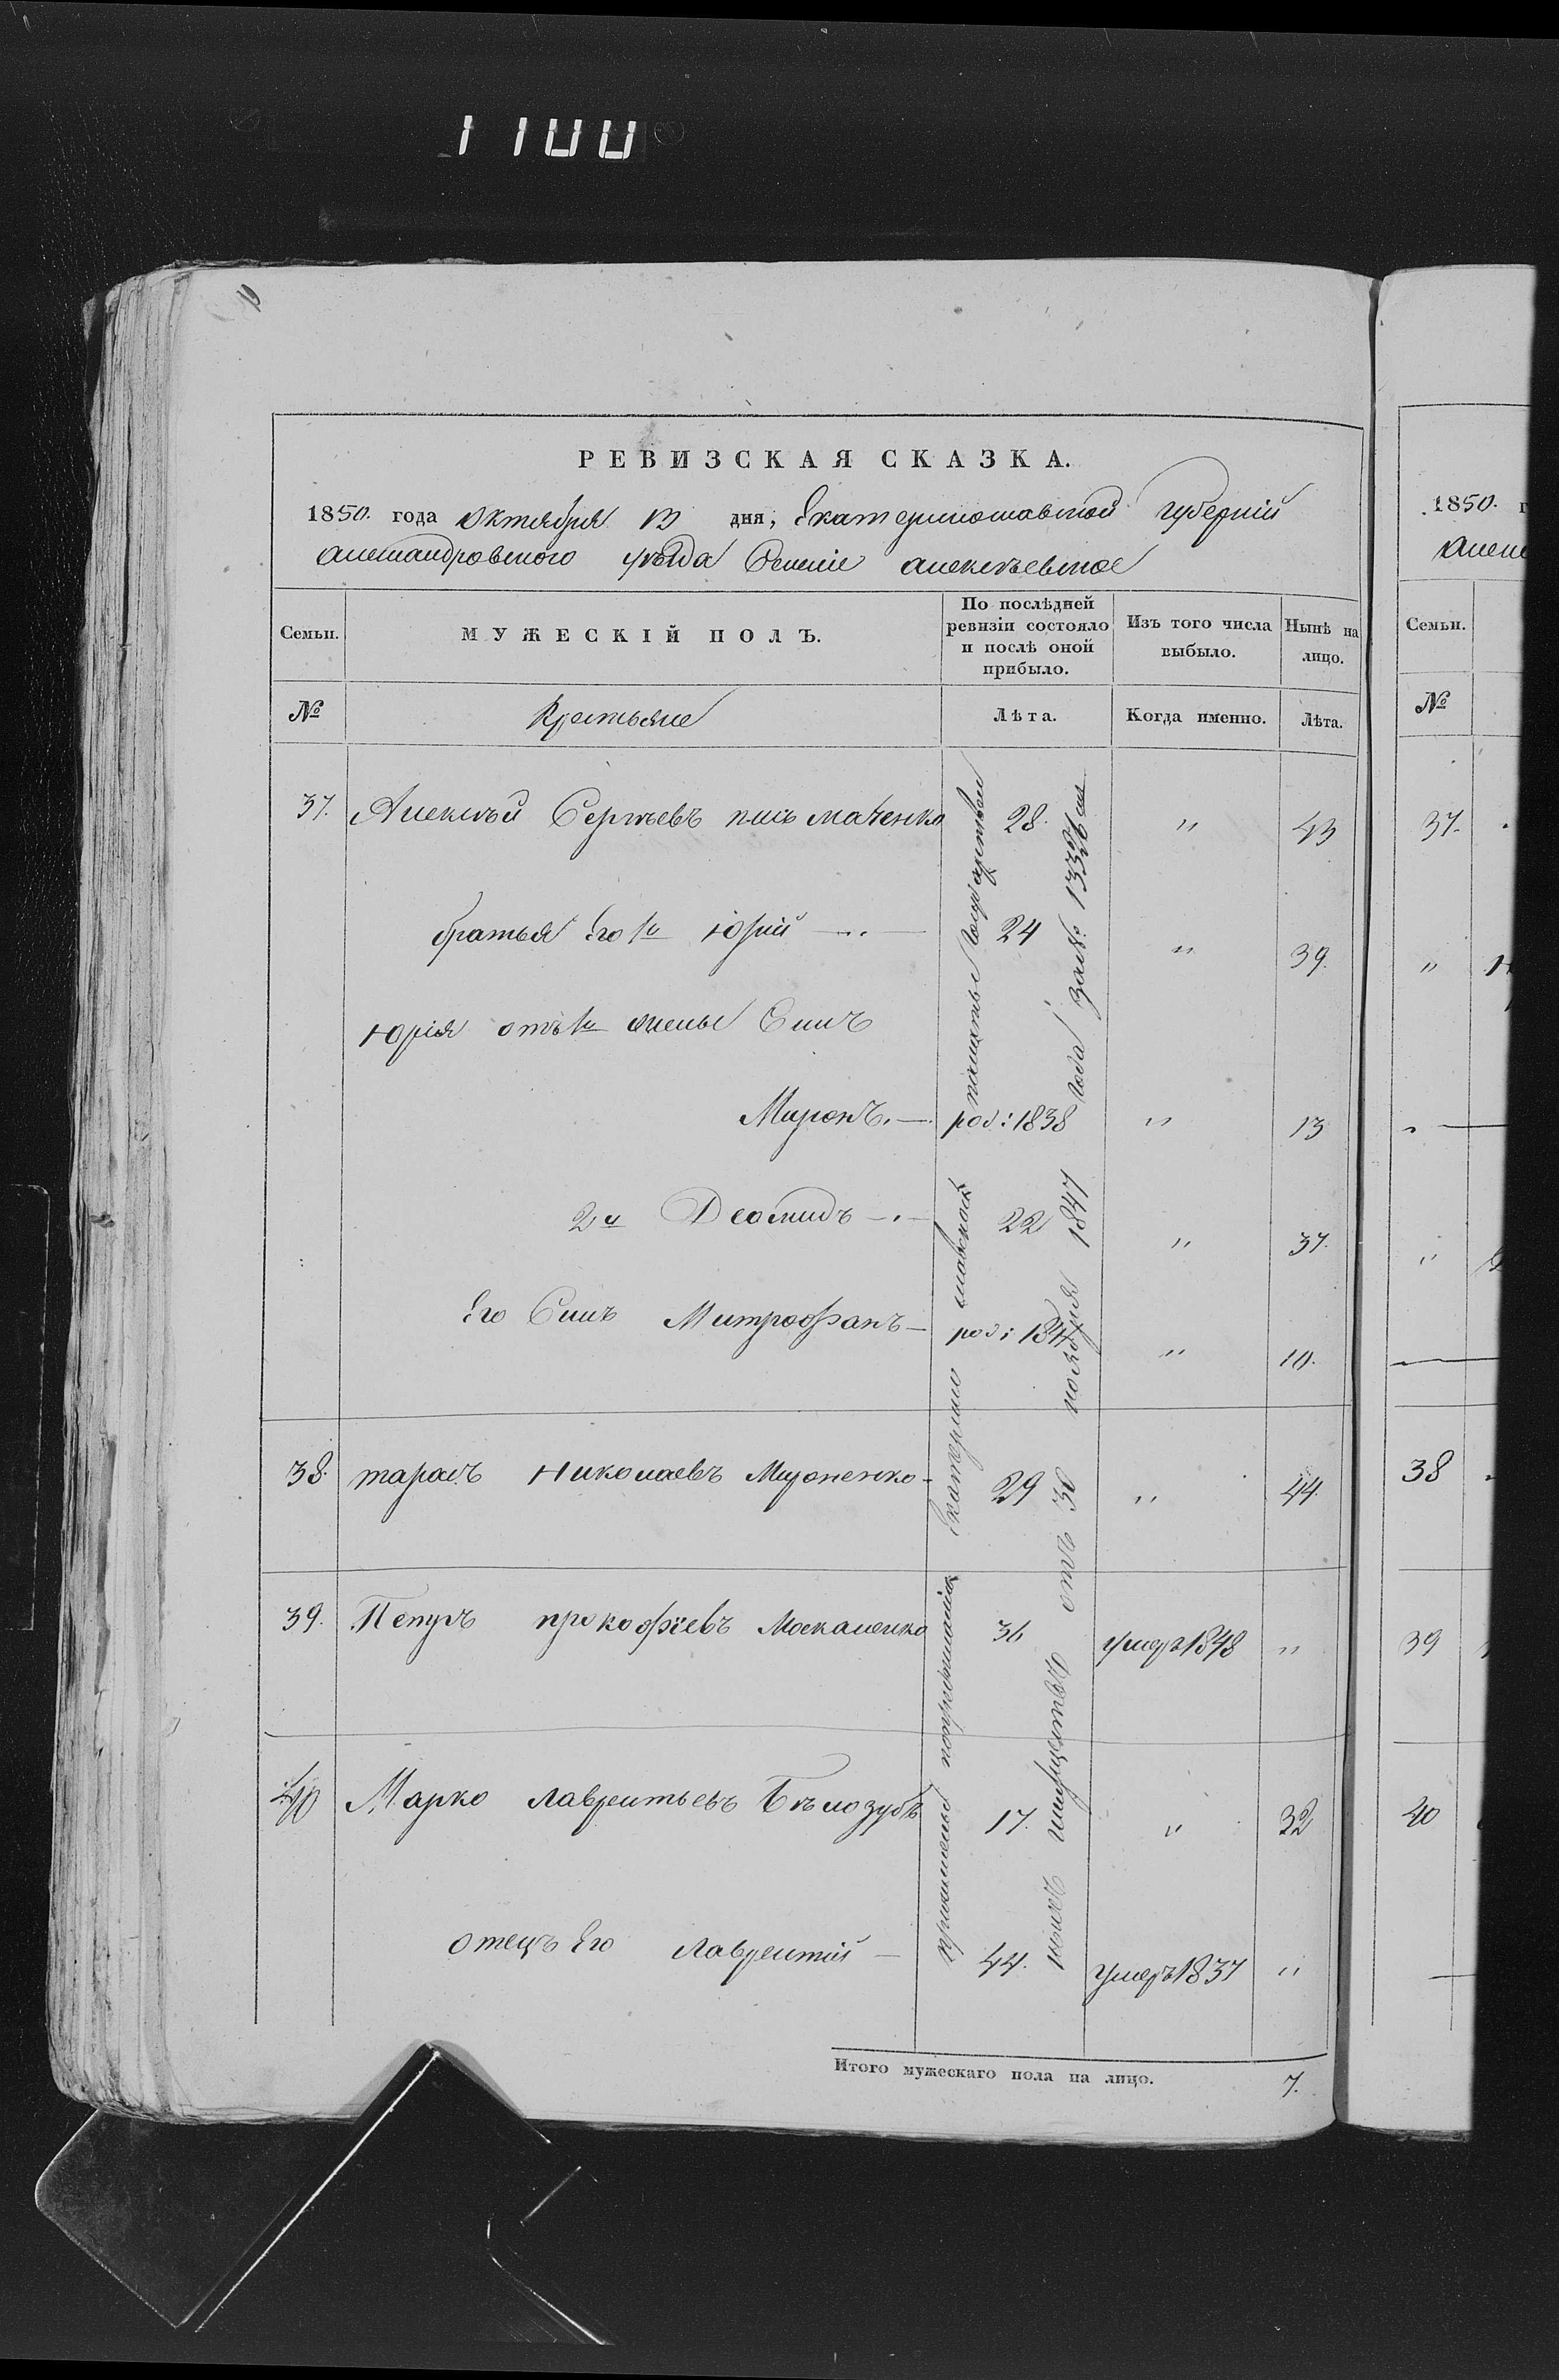 1100
РЕВИЗСКАЯ СКАЗКА.
1850. года октября 13 дня, Екатеринославской губернiи
александровского уѣзда Селенiе алексѣевское
Семьи.
МУЖЕСКIЙ ПОЛЪ.
По послѣдней ревизiи состояло и послѣ оной прибыло.
Изъ того числа выбыло.
Нынѣ на лицо.
№ Крестьяне Лѣта. Когда именно. Лѣта.
37. Алексѣй Сергѣевъ письмаченко 28. " 43
братья Его 1й Юрiй 24 " 39.
Юрiя отъ 1й жены Сынъ
Миронъ. род: 1838 " 13
2й Деомидъ 22 " 37.
Его Сынъ Митрофанъ род: 1841 " 10.
38. тарасъ Николаевъ Мироненко 29 " 44.
39. Петръ прокофiевъ Москаленко 36 умеръ 1848 "
40 Марко Лаврентьевъ Бѣлозубъ 17. " 32
отецъ Его Лаврентiй 44. умеръ 1837 "
Екатеринославской палаты Государственныхъ Имуществъ отъ 30 ноября 1847 года за №
Итого мужескаго пола на лицо. 7.
1850. г
Семьи.
№
37.
"
"
38
39
40